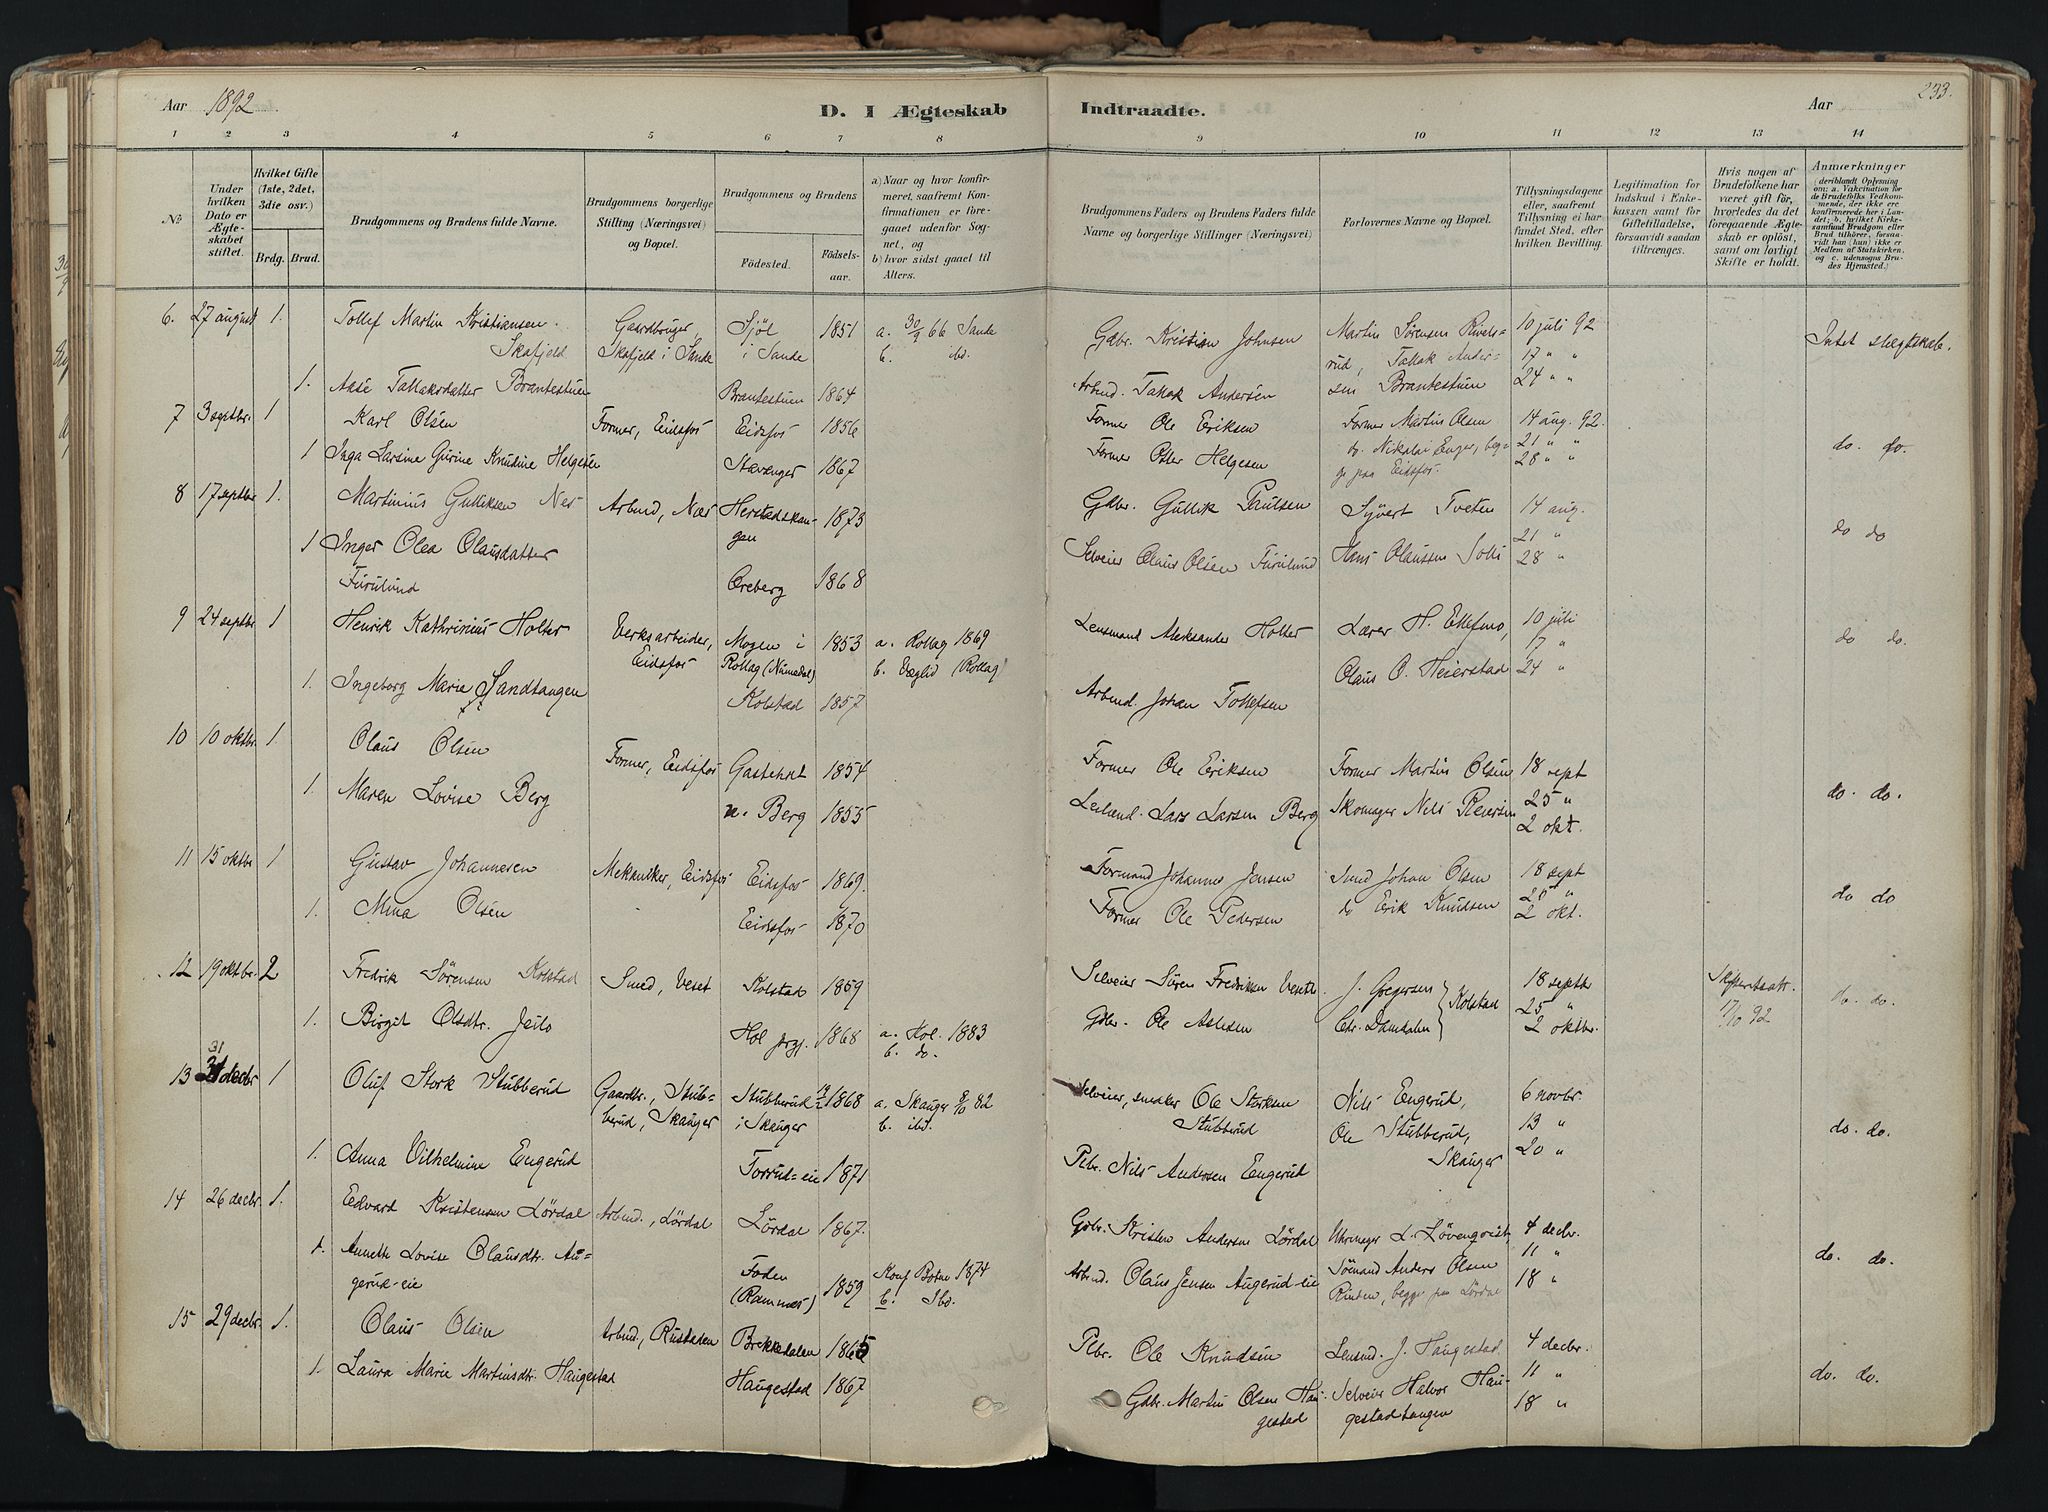 Aar 1892
D. I Ægteskab Indtraadte.
Aar
233.
1 2 3 4 5 6 7 8 9 10 11 12 13 14
№
Under hvilken Dato er Ægteskabet stiftet.
Hvilket Gifte (1ste, 2det, 3die osv.)
Brdg. Brud.
Brudgommens og Brudens fulde Navne.
Brudgommens borgerlige Stilling (Næringsvei) og Bopæl.
Brudgommens og Brudens
Fødested.
Fødsels-aar.
a) Naar og hvor konfirmeret, saafremt Konfirmationen er foregaaet udenfor Sognet, og
b) hvor sidst gaaet til Alters.
Brudgommens Faders og Brudens Faders fulde Navne og borgerlige Stillinger (Næringsvei)
Forlovernes Navne og Bopæl.
Tillysningsdagene eller, saafremt Tillysning ei har fundet Sted, efter hvilken Bevilling.
Legitimation for Indskud i Enkekassen samt for Giftetilladelse, forsaavidt saadan tiltrænges.
Hvis nogen af Brudefolkene har været gift før, hvorledes da det foregaaende Ægteskab er opløst, samt om lovligt Skifte er holdt.
Anmærkninger
(deriblandt Oplysning om: a. Vakcination for de Brudefolks Vedkommende, der ikke ere konfirmerede her i Landet; b. hvilket Kirkesamfund Brudgom eller Brud tilhører, forsaavidt han (hun) ikke er Medlem af Statskirken, og c. udensogns Brudes Hjemsted.)
6. 27 august 1. Tollef Martin Kristiansen Gaardbruger, Sjöl 1851 a. 30/9 66 Sande Gdbr. Kristian Johnsen Martin Sörensen Rivels- 10 juli 92
Skafjeld Skafjeld i Sande i Sande b. ibd. rud, Tallak Ander- 17 " " Intet slægtskab.
1. Aase Tallaksdatter Brantestuen Brantestuen 1864 Arbmd. Tallak Andersen sen Brantestuen 24 " "
7 3 septbr. 1 Karl Olsen Former, Eidsfos Eidsfos 1856 Former Ole Eriksen Former Martin Olsen 14 aug. 92.
1 Inga Larsine Gurine Knudine Helgesen Stavanger 1867 Former Peter Helgesen do. Nikolai Enger, beg- 21 " " do. do.
ge paa Eidsfos. 28 " "
8 17 septbr 1. Martinius Gulliksen Nes Arbmd, Næs Herstadskan- 1873 Gdbr. Gullik Paulsen Syvert Tveten 14 aug.
gen 21 " do do
1 Inger Olea Olausdatter Selveier Olaus Olsen Furulund Hans Olaussen 28 "
Furulund Oreberg 1868
9 24 septbr 1 Henrik Kathrinius Holter Verksarbeider, Mogen i 1853 a. Rollag 1869 Lensmand Aleksander Holter Lærer H. Ellefmo, 10 juli
Eidsfos Rollag (Numedal) b. Væglid (Rollag) 17 " do do.
1. Ingeborg Marie Sandtangen Kolstad 1857 Arbmd. Johan Tollefsen Olaus O. Heierstad 24 "
10 10 oktbr. 1 Olaus Olsen Former, Eidsfos Gasteholt 1854 Former Ole Eriksen Former Martin Olsen 18 sept
1. Maren Lovise Berg n. Berg 1855 Leilænd. Lars Larsen Berg Skomager Nils Reiersen 25 " do. do.
2 okt.
11 15 oktbr 1 Gustav Johannesen Mekaniker, Eidsfos Eidsfos 1869. Formand Johannes Jensen Smed Johan Olsen 18 sept
1. Mina Olsen Eidsfos 1870 Former Ole Pedersen do Erik Knudsen 25 " do do
2 okt.
12 19 oktbr. 2 Fredrik Sörensen Kolstad Smed, Veset Kolstad 1859 Selveier Sören Fredriksen J. Gregersen 18 septbr
1. Birgit Olsdtr. Jeilo Hol prgj. 1868 a. Hol. 1883 Gdbr. Ole Aslesen Chr. Damdalen Kolstad 25 " 17/10 92 do. do.
b. do. 2 oktbr.
13 31 decbr 1 Oluf Stork Stubberud Gaardbr., Stub- Stubberud 1868 a. Skauger 8/10 82 Selveier, snedker Ole Storksen Nils Engerud, 6 novbr.
berud, Skauger i Skauger b. ibd. Stubberud Ole Stubberud, 13 " do. do.
1. Anna Vilhelmine Engerud Forrud-eie 1871 Plbr. Nils Andersen Engerud Skauger 20 "
14 26 decbr. 1. Edvard Kristensen Lördal Arbmd., Lördal Lördal 1867. Gdbr. Kristen Andersen Lördal Uhrmager L. Lövenqvist, 4 decbr.
1. Annette Lovise Olausdtr. Au- Foden 1859 Konf Botne 1874 Arbmd. Olaus Jensen Augerud-eie Sömand Anders Olsen 11 " do. do.
gerud-eie (Ramnes) b. Ibd. Rinden, begge paa Lördal 18 "
15 29 decbr. 1. Olaus Olsen Arbmd, Rustaden Bekkedalen 1865 Plbr. Ole Knudsen Lensmd. J. Haugestad 4 decbr.
1. Laura Marie Martinsdtr. Haugestad Haugestad 1867 Gdbr. Martin Olsen Hau- Selveier Halvor Hau- 11 " do. do.
gestad gestadtangen 18 "